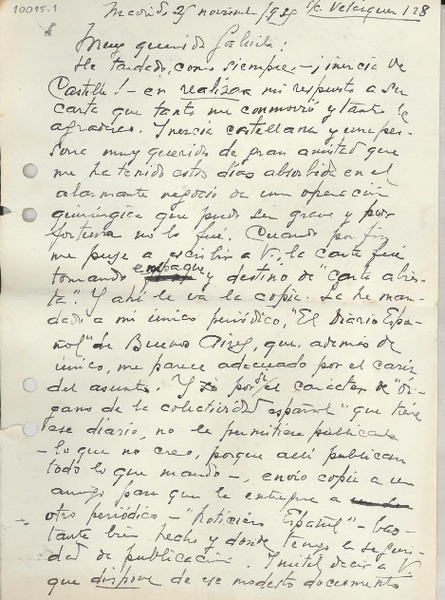 10015.1
Madrid 25 noviembre 1925 c/ Velázquez 128
Muy querida Gabriela:
He tardado, como siempre – ¡inercia de
Castilla! – en realizar mi respuesta a su
carta que tanto me conmovió y tanto le
agradezco. Inercia castellana y una per-
sona muy querida de gran amistad que
me ha tenido estos días absorbida en el
alarmante negocio de una operación
quirúrgica que pudo ser grave y por
fortuna no lo fué. Cuando por fin
me puse a escribir a V., la carta fué
tomando empaque y destino de "carta abier-
ta" Y ahí le va la copia. La he man-
dado a mi único periódico, "El Diario Espa-
ñol" de Buenos Aires, que, además de
único, me parece adecuado por el cariz
del asunto. Y si por el carácter de "ór-
gano de la colectividad español" que tiene
ese diario, no le permitiera publicarla
– lo que no creo, porque allí publican
todo lo que mando –, envío copia a un
amigo para que la entregue a
otro periódico – "Noticiero Español" – bas-
tante bien hecho y donde tengo la seguri-
dad de publicación. Inutil decir a V.
que dispone de ese modesto documento